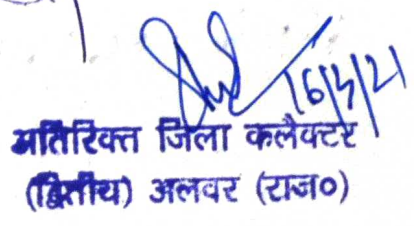 16/4/21
अतिरिक्त जिला कलैक्टर
(द्वितीय) अलवर (राज०)